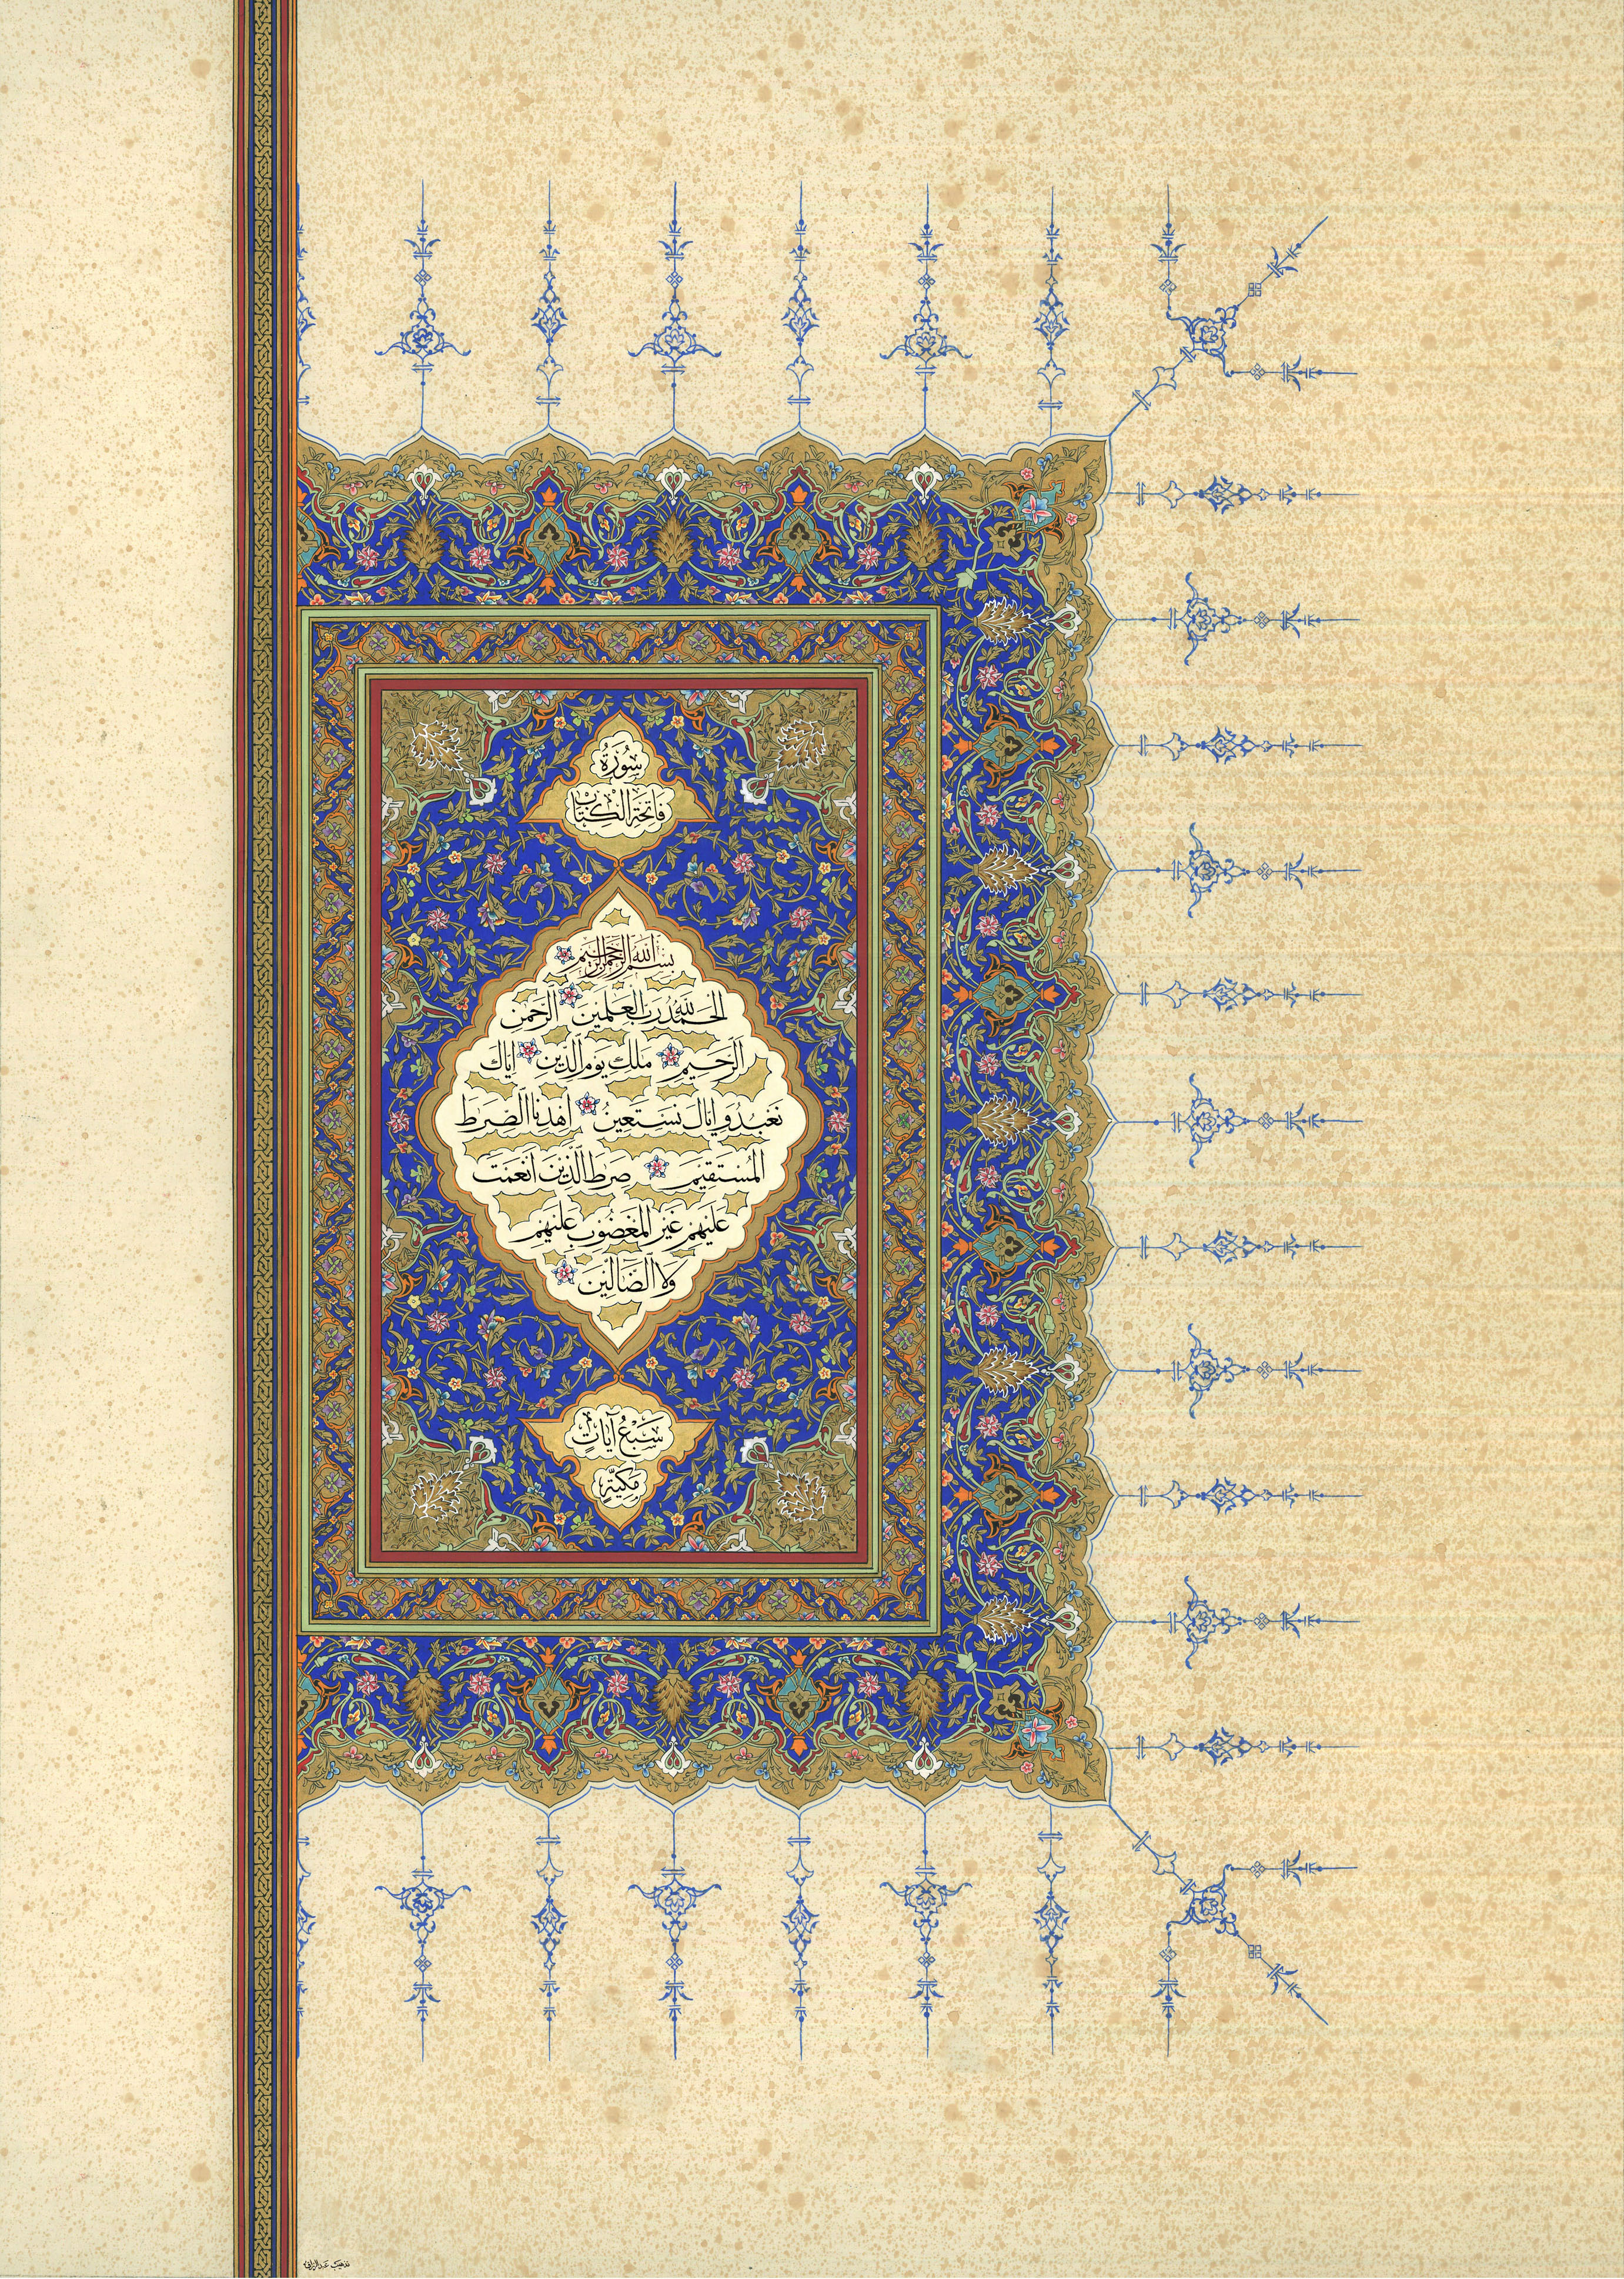 سُورَةُ
فَاتِحَةِ الْكِتَابِ
بِسْمِ اللَّهِ الرَّحْمَٰنِ الرَّحِيمِ
الْحَمْدُ لِلَّهِ رَبِّ الْعَٰلَمِينَ الرَّحْمَٰنِ
الرَّحِيمِ مَٰلِكِ يَوْمِ الدِّينِ إِيَّاكَ
نَعْبُدُ وَإِيَّاكَ نَسْتَعِينُ اهْدِنَا الصِّرَٰطَ
الْمُسْتَقِيمَ صِرَٰطَ الَّذِينَ أَنْعَمْتَ
عَلَيْهِمْ غَيْرِ الْمَغْضُوبِ عَلَيْهِمْ
وَلَا الضَّالِّينَ
سَبْعُ آيَاتٍ
مَكِّيَّةٍ
تذهيب